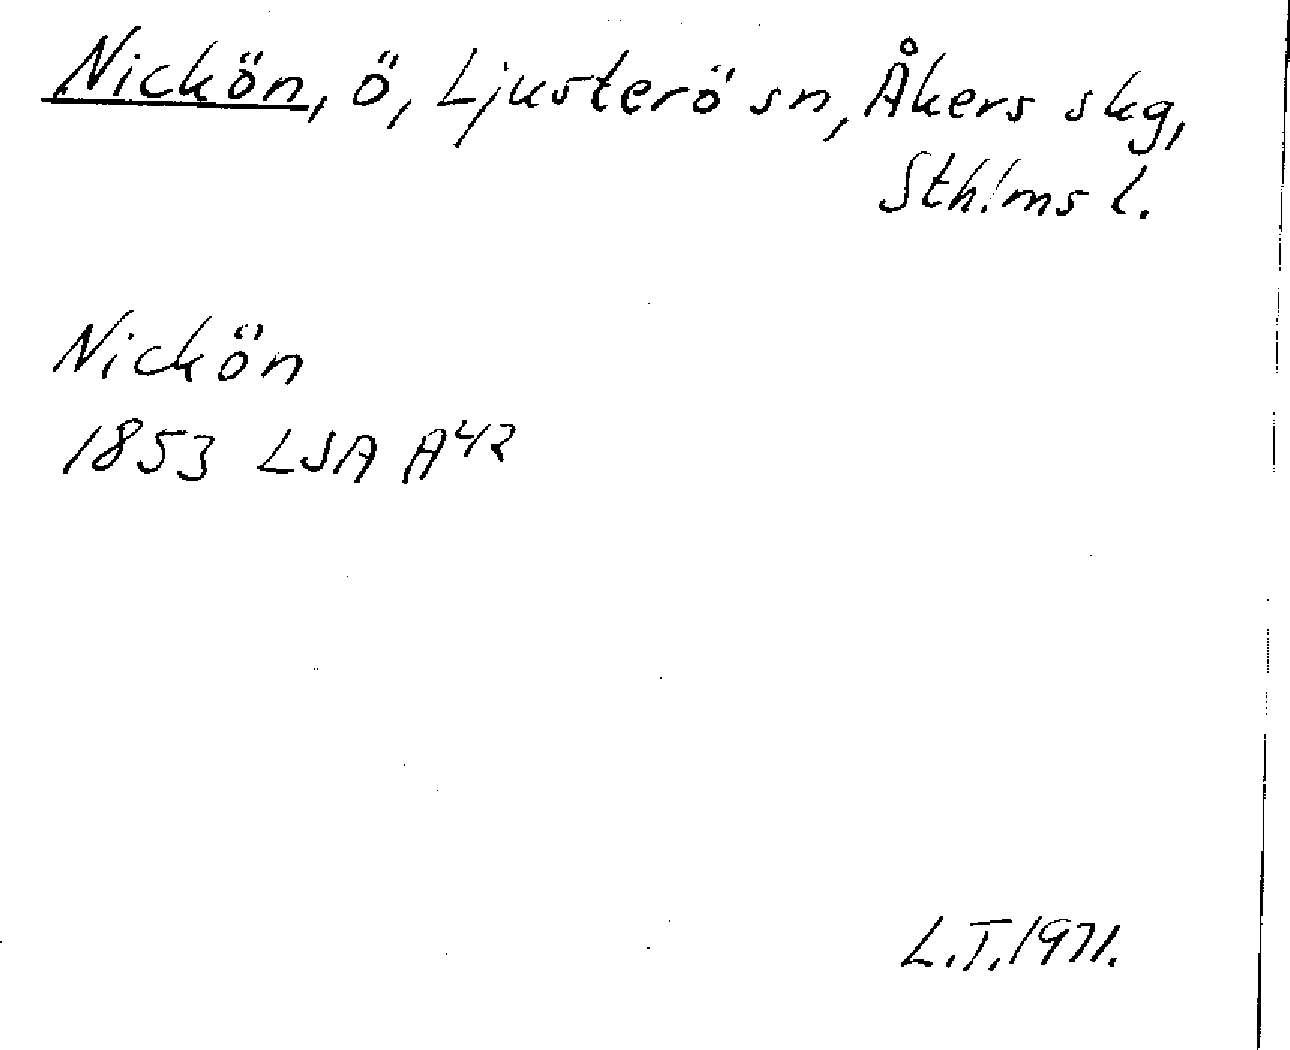 Nickön, ö, Ljusterö sn, Åkers skg,
Sthlms l.
Nickön
1853 LSA A42
L.T. 1971.